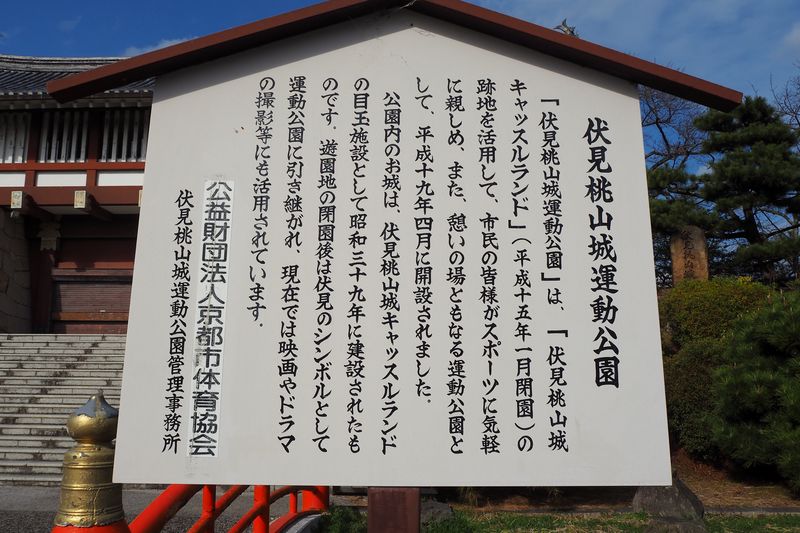 伏見桃山城運動公園
「伏見桃山城運動公園」は、「伏見桃山城
キャッスルランド」（平成十五年一月閉園）の
跡地を活用して、市民の皆様がスポーツに気軽
に親しめ、また、憩いの場ともなる運動公園と
して、平成十九年四月に開設されました。
公園内のお城は、伏見桃山城キャッスルランド
の目玉施設として昭和三十九年に建設されたも
のです。遊園地の閉園後は伏見のシンボルとして
運動公園に引き継がれ、現在では映画やドラマ
の撮影等にも活用されています。
公益財団法人京都市体育協会
伏見桃山城運動公園管理事務所